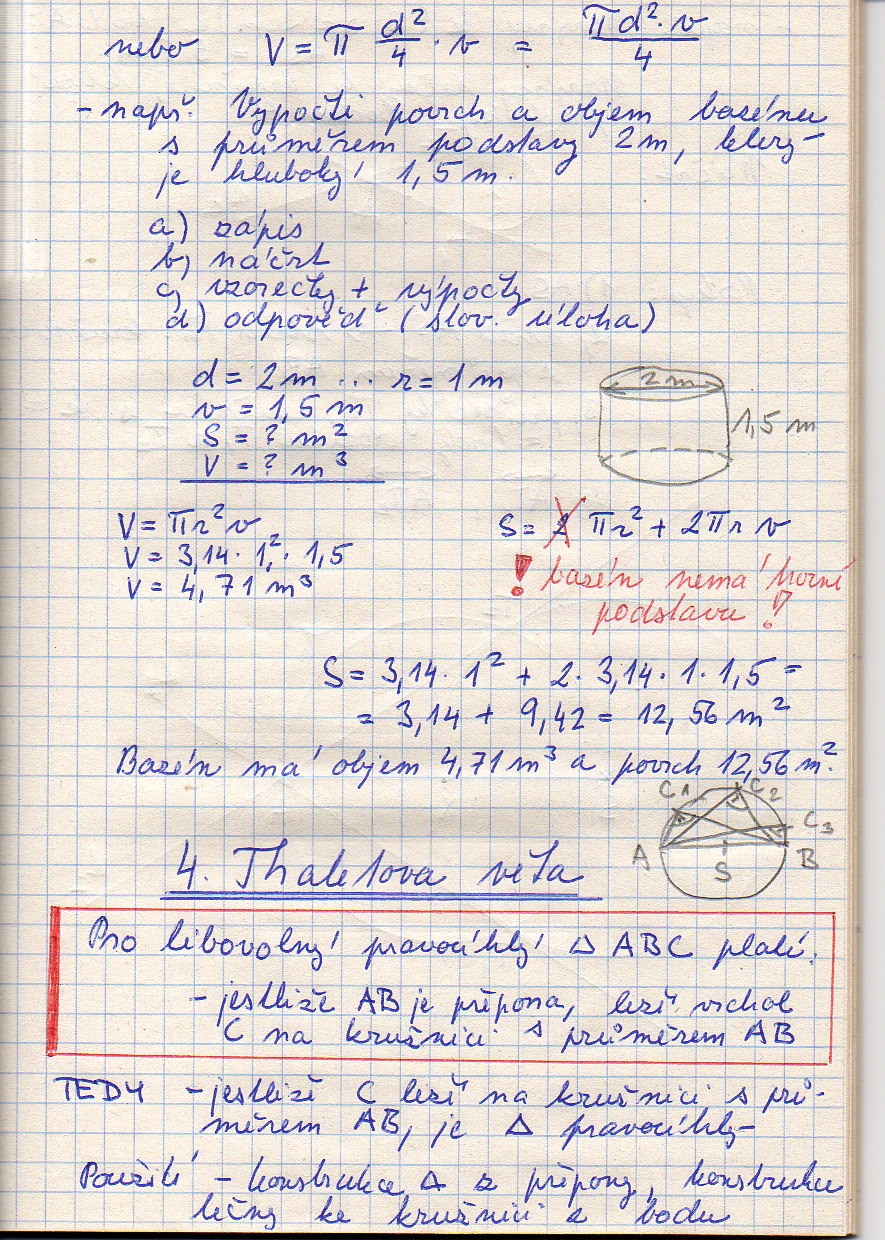 nebo V = π d²/4 · v = πd²·v/4
- např. Vypočti povrch a objem bazénu
s průměrem podstavy 2m, který
je hluboký 1,5 m.
a) zápis
b) náčrt
c) vzorečky + výpočty
d) odpověď (slov. úloha)
d = 2m ... r = 1m
v = 1,5 m
S = ? m²
V = ? m³
2m
1,5 m
V = πr²v
V = 3,14 · 1² · 1,5
V = 4,71 m³
S = 2 πr² + 2πr v
! bazén nemá horní
podstavu!
S = 3,14 · 1² + 2 · 3,14 · 1 · 1,5 =
= 3,14 + 9,42 = 12,56 m²
Bazén má objem 4,71 m³ a povrch 12,56 m².
C1 C2
C3
A S B
4. Thaletova věta
Pro libovolný pravoúhlý △ ABC platí:
- jestliže AB je přepona, leží vrchol
C na kružnici s průměrem AB
TEDY - jestliže C leží na kružnici s prů-
měrem AB, je △ pravoúhlý
Použití - konstrukce △ z přepony, konstrukce
tečny ke kružnici z bodu